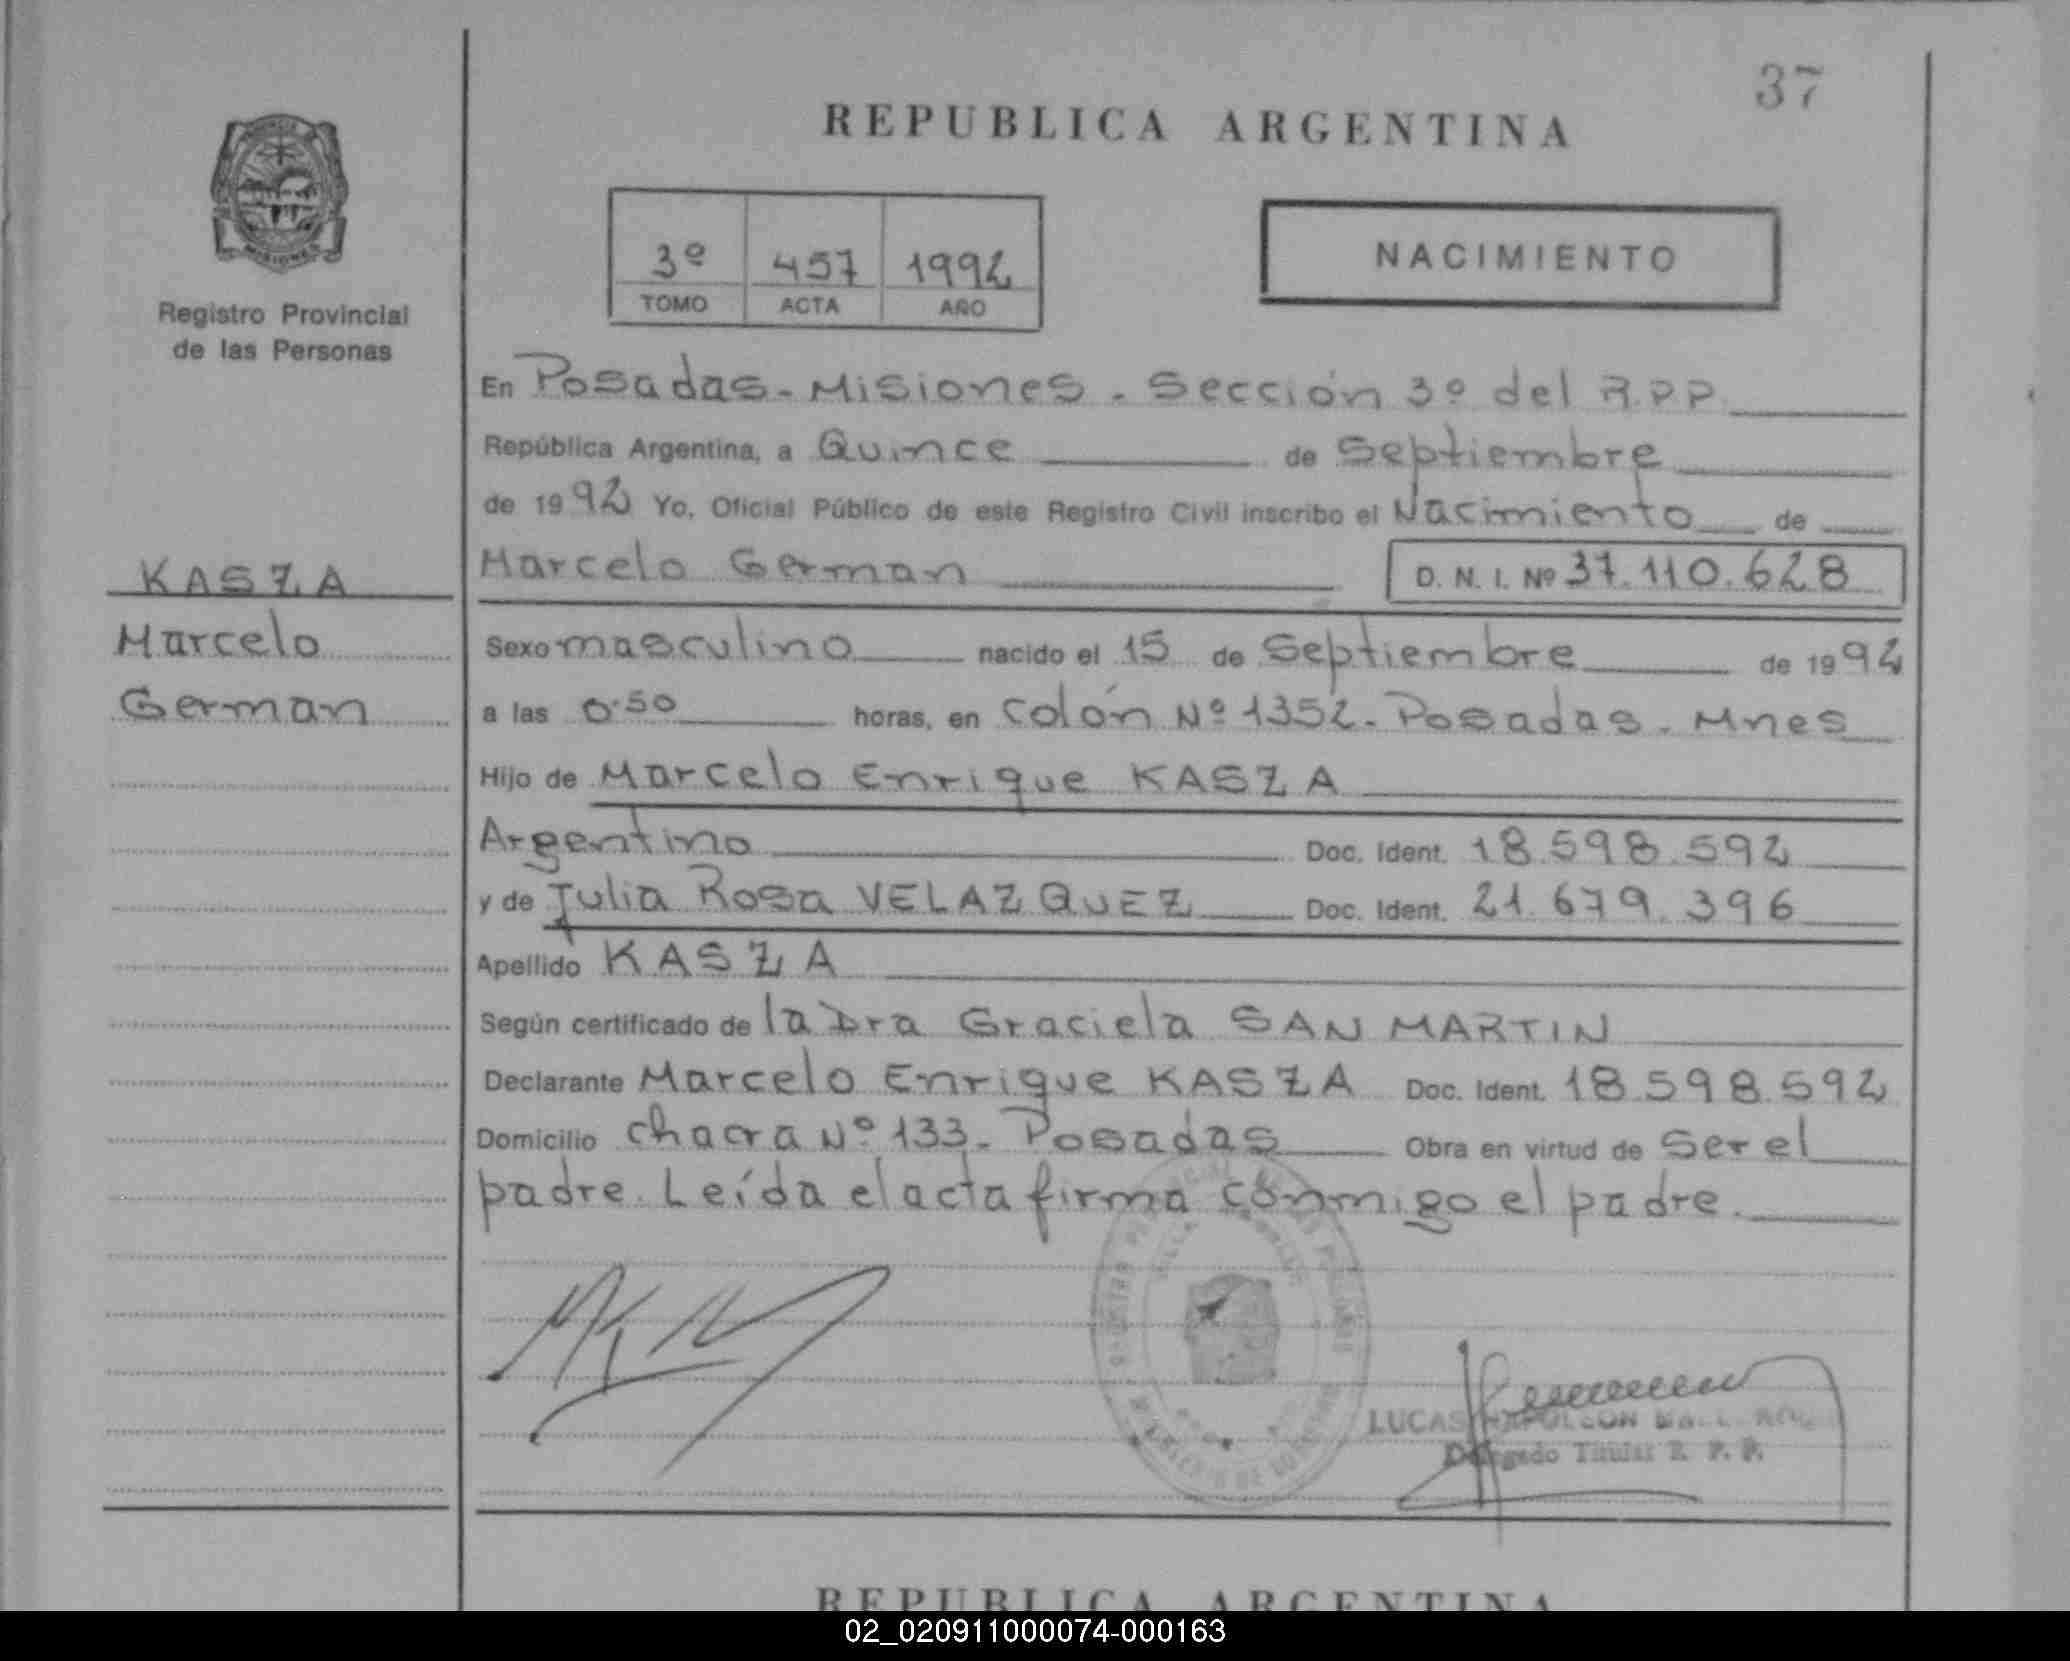 37
REPUBLICA ARGENTINA
Registro Provincial
de las Personas
3º 457 1992
TOMO ACTA AÑO
NACIMIENTO
En Posadas - Misiones. Sección 3º del R.P.P.
República Argentina, a Quince de Septiembre
de 1992 Yo, Oficial Público de este Registro Civil inscribo el Nacimiento de
Marcelo German D. N. I. Nº 37.110.628
KASZA
Marcelo
German
Sexo masculino nacido el 15 de Septiembre de 1992
a las 0·50 horas, en Colón Nº 1352. Posadas. Mnes
Hijo de Marcelo Enrique KASZA
Argentino Doc. Ident. 18.598.592
y de Julia Rosa VELAZQUEZ Doc. Ident. 21.679.396
Apellido KASZA
Según certificado de la Dra Graciela SAN MARTIN
Declarante Marcelo Enrique KASZA Doc. Ident. 18.598.592
Domicilio chacra Nº 133. Posadas Obra en virtud de Ser el
padre. Leída el acta firma conmigo el padre.
LUCAS NAPOLEON
Delegado Titular R. P. P.
REPUBLICA ARGENTINA
02_020911000074-000163